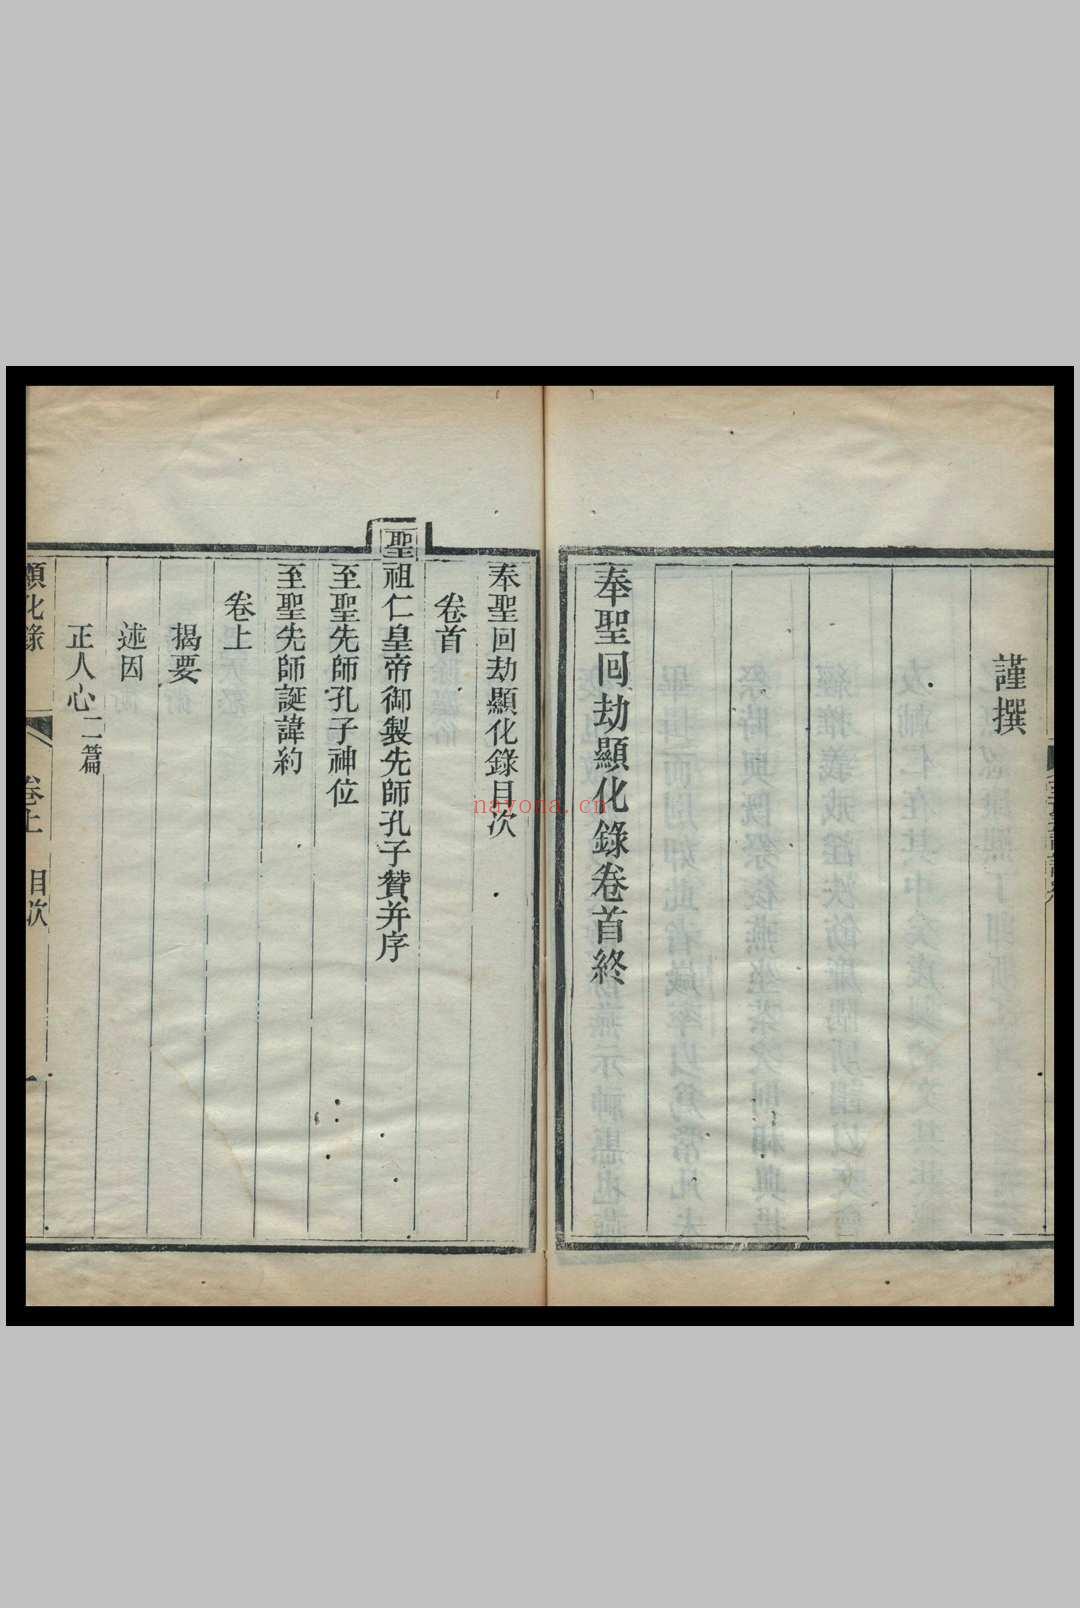 謹撰
奉聖回劫顯化錄卷首終
奉聖回劫顯化錄目次
卷首
聖祖仁皇帝御製先師孔子贊并序
至聖先師孔子神位
至聖先師誕諱約
卷上
揭要
述因
正人心二篇
顯化錄 卷上 目次 一
nayona.cn